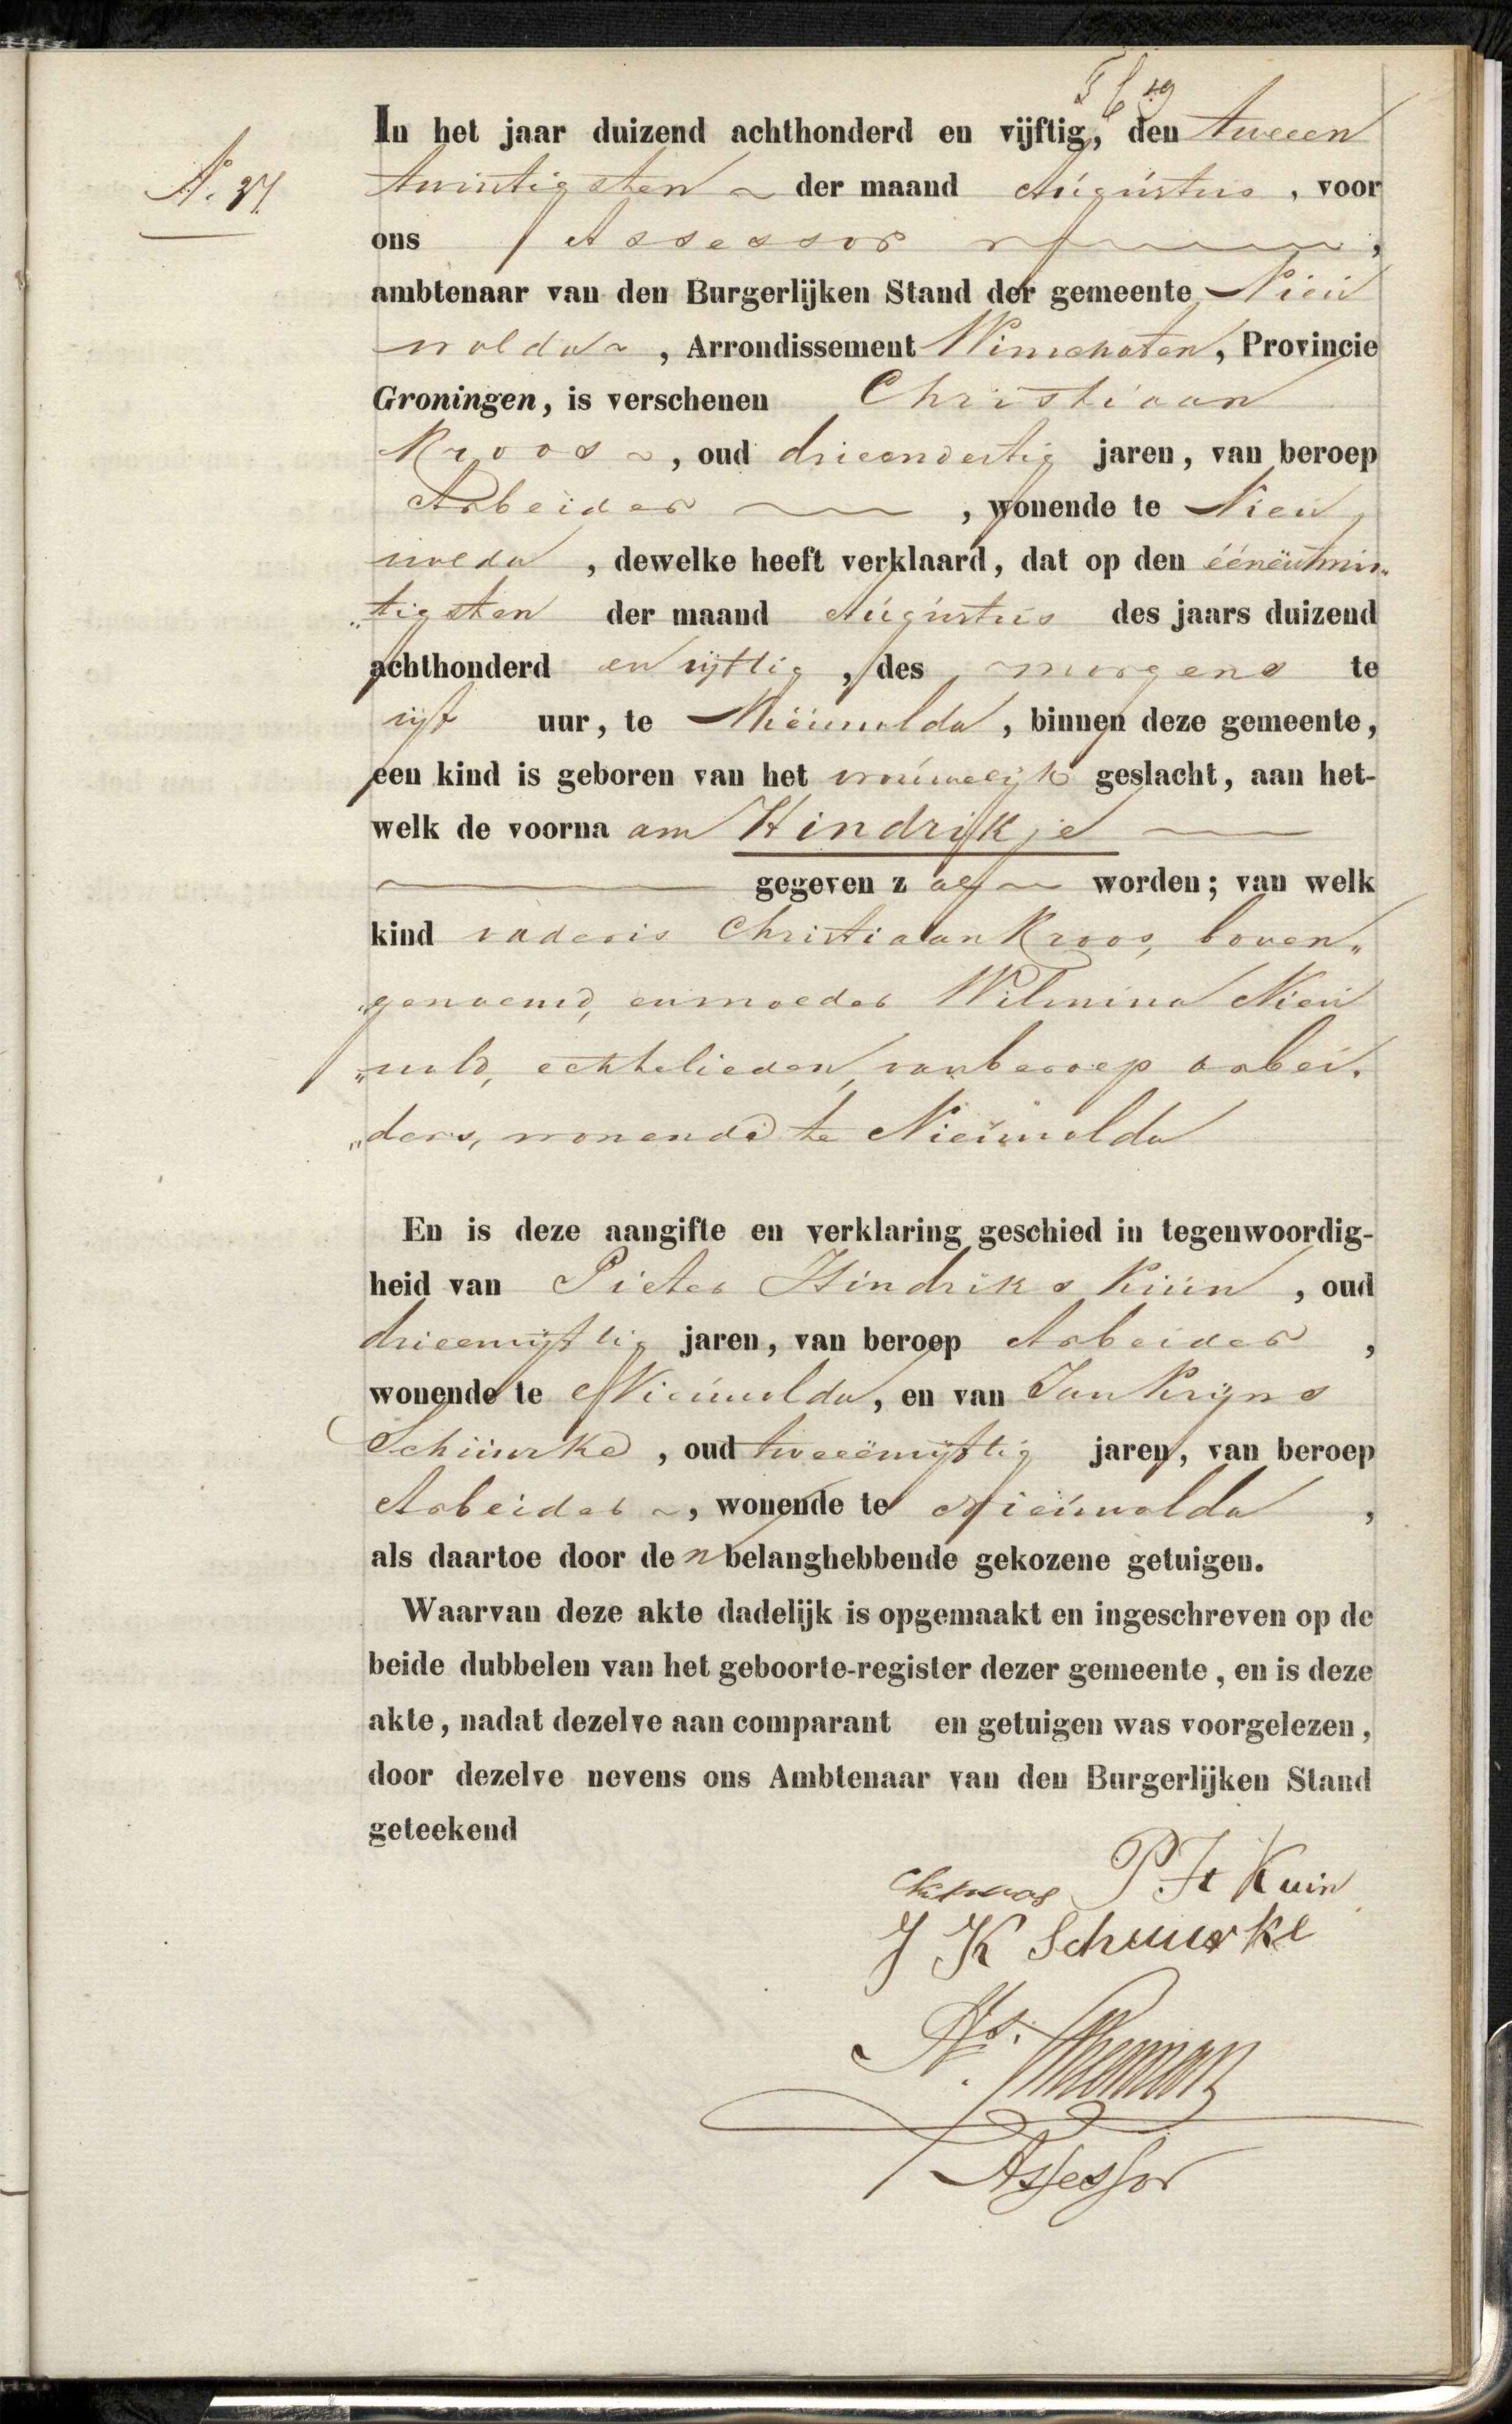 In het jaar duizend achthonderd en vijftig, den tweeen
N.º 37.
twintigsten ~ der maand Augustus, voor
ons Assessor ,
ambtenaar van den Burgerlijken Stand der gemeente Nieu
wolda ~, Arrondissement Winschoten, Provincie
Groningen, is verschenen Christiaan
Kroos ~, oud drieendertig jaren, van beroep
Arbeider , wonende te Nieu
wolda , dewelke heeft verklaard, dat op den éénentwin„
„tigsten der maand Augustus des jaars duizend
achthonderd en vijftig , des morgens te
vijf uur, te Nieuwolda , binnen deze gemeente,
een kind is geboren van het vrouwelijk geslacht, aan het-
welk de voorna am Hindrikje
gegeven z al ~ worden; van welk
kind vader is Christiaan Kroos, boven„
„genoemd, en moeder Wilmina Nieu
„wold, echtelieden, van beroep arbei„
„ders, wonende te Nieuwolda
En is deze aangifte en verklaring geschied in tegenwoordig-
heid van Pieter Hindriks Kuin , oud
drieenvijftig jaren, van beroep Arbeider ,
wonende te Nieuwolda, en van Jan Krijns
Schuurke , oud tweeenvijftig jaren, van beroep
Arbeider ~, wonende te Nieuwolda ,
als daartoe door de n belanghebbende gekozene getuigen.
Waarvan deze akte dadelijk is opgemaakt en ingeschreven op de
beide dubbelen van het geboorte-register dezer gemeente, en is deze
akte, nadat dezelve aan comparant en getuigen was voorgelezen,
door dezelve nevens ons Ambtenaar van den Burgerlijken Stand
geteekend
P. H Kuin
J K Schuurke
Assessor